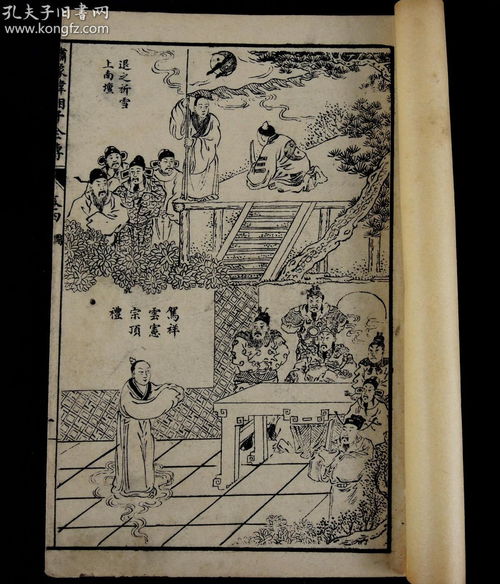 孔夫子旧书网
www.kongfz.com
退之祈雪
上南壇
繡像韓湘子全傳
駕祥
雲憲
宗頂
禮